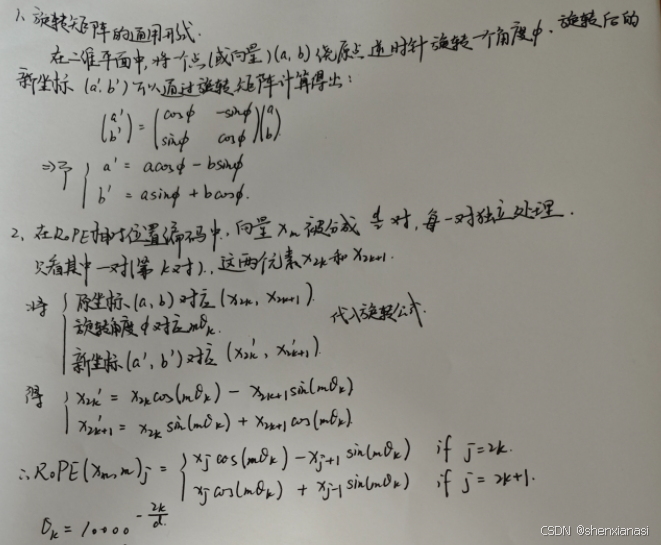 1、旋转矩阵的通用形式.
在二维平面中,将一个点(或向量)(a, b) 绕原点逆时针旋转一个角度φ. 旋转后的
新坐标 (a', b') 可以通过旋转矩阵计算得出:
(a' b') = (cosφ -sinφ sinφ cosφ)(a b)
=>得 { a' = acosφ - bsinφ
b' = asinφ + bcosφ.
2、在RoPE相对位置编码中, 向量 xm 被分成 d/2 对, 每一对独立处理.
只看其中一对(第 k 对)., 这两个元素 x2k 和 x2k+1.
将 { 原坐标 (a, b) 对应 (x2k, x2k+1).
旋转角度 φ 对应 mθk. 代入旋转公式.
新坐标 (a', b') 对应 (x2k', x2k+1').
得 { x2k' = x2k cos(mθk) - x2k+1 sin(mθk)
x2k+1' = x2k sin(mθk) + x2k+1 cos(mθk)
∴ RoPE(xm, m)j = { xj cos(mθk) - xj+1 sin(mθk) if j=2k.
xj cos(mθk) + xj-1 sin(mθk) if j=2k+1.
θk = 10000^(-2k/d).
CSDN @shenxianasi